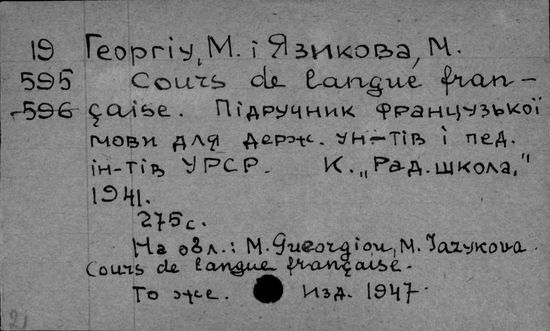 19 Георгіу, М. і Язикова, М.
595 Cours de langue fran-
-596 çaise. Підручник французької
мови для держ. ун-тів і пед.
ін-тів УРСР. К. „Рад. школа,"
1941.
275 с.
На обл.: M. Gueorgiou, M. Jazykova.
Cours de langue française.
То же. Изд. 1947.